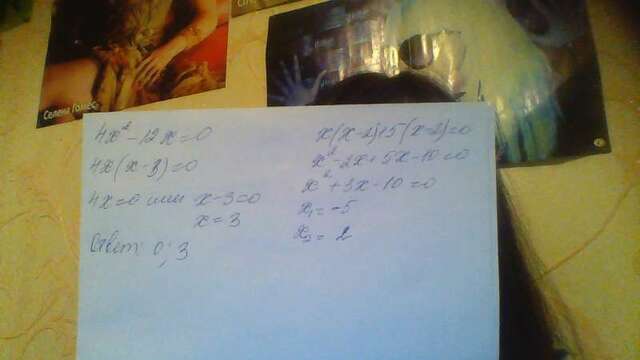 Селена Гомес
4x² - 12x = 0
4x(x-3) = 0
4x=0 или x-3=0
x=3
Ответ: 0; 3
x(x-2)+5(x-2)=0
x²-2x+5x-10=0
x²+3x-10=0
x₁=-5
x₂=2